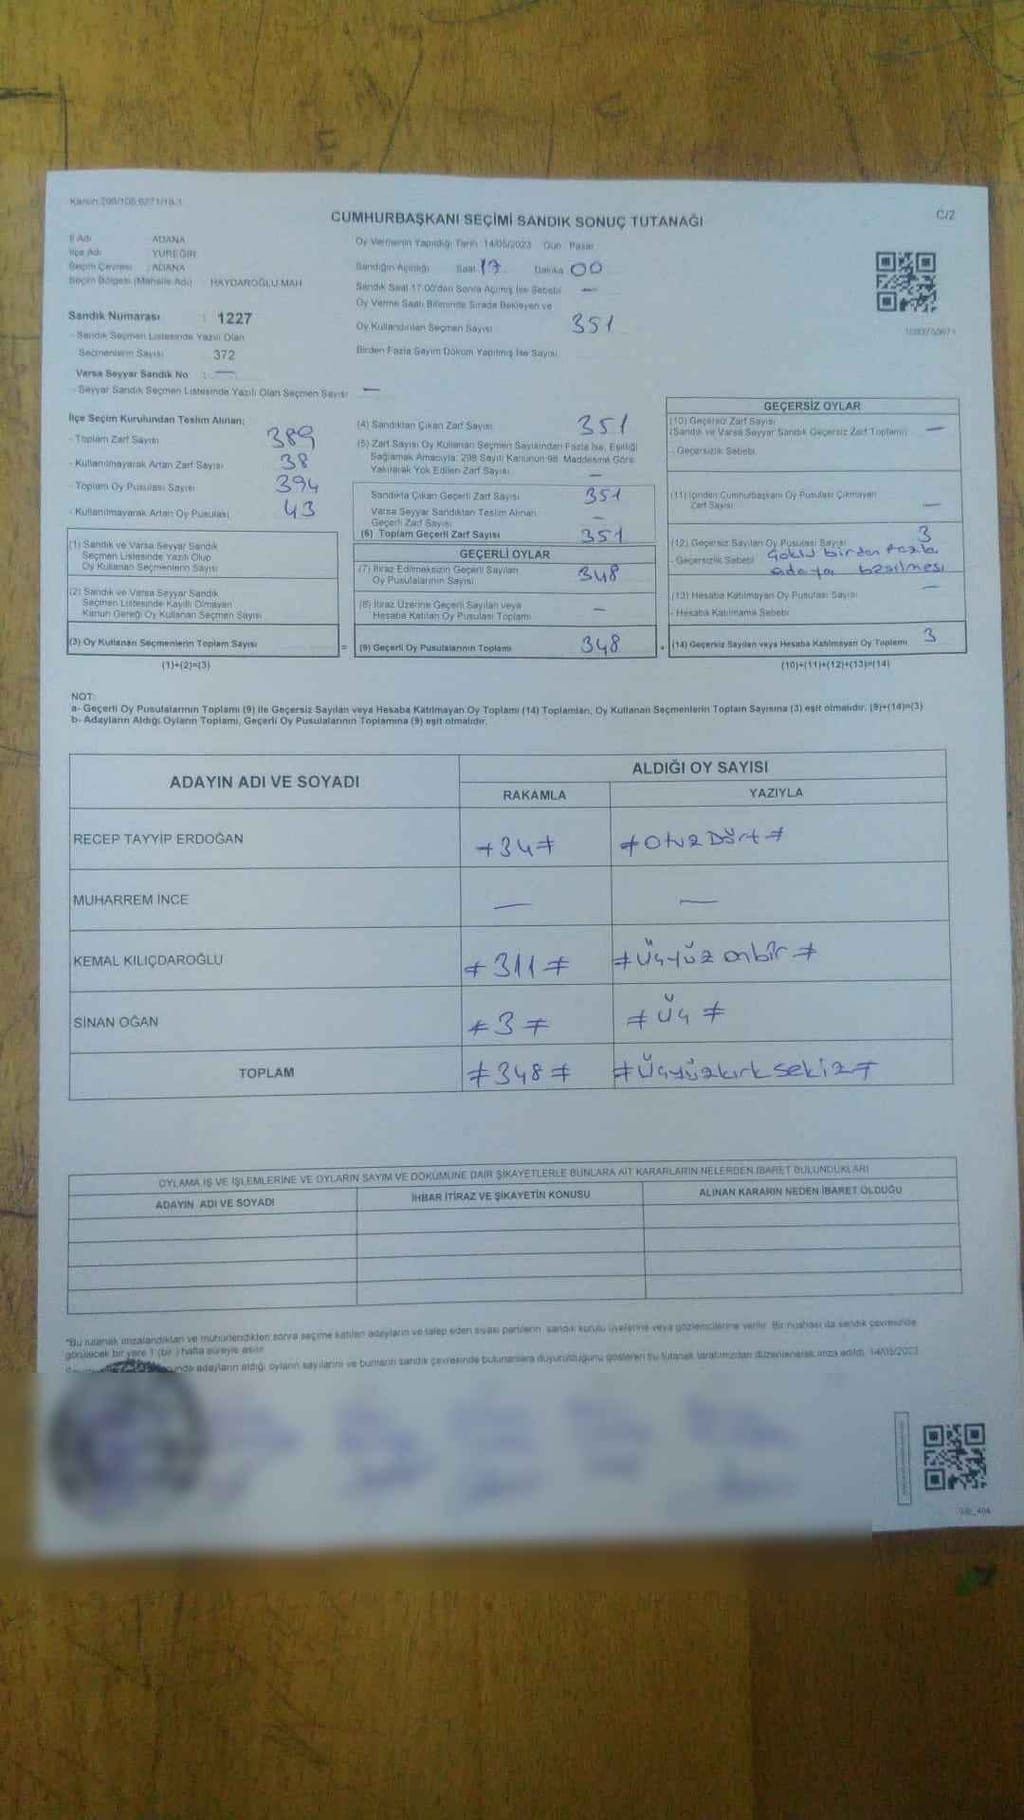 Kanun:298/106,6271/18-1
C/2
CUMHURBAŞKANI SEÇİMİ SANDIK SONUÇ TUTANAĞI
İl Adı : ADANA
İlçe Adı : YÜREĞİR
Seçim Çevresi : ADANA
Seçim Bölgesi (Mahalle Adı) : HAYDAROĞLU MAH
Sandık Numarası : 1227
- Sandık Seçmen Listesinde Yazılı Olan
Seçmenlerin Sayısı : 372
Varsa Seyyar Sandık No : —
- Seyyar Sandık Seçmen Listesinde Yazılı Olan Seçmen Sayısı : —
Oy Vermenin Yapıldığı Tarih: 14/05/2023 Gün: Pazar
Sandığın Açıldığı Saat 17 Dakika 00
Sandık Saat 17:00'den Sonra Açılmış İse Sebebi —
Oy Verme Saati Bitiminde Sırada Bekleyen ve
Oy Kullandırılan Seçmen Sayısı 351
Birden Fazla Sayım Döküm Yapılmış İse Sayısı
İlçe Seçim Kurulundan Teslim Alınan:
- Toplam Zarf Sayısı 389
- Kullanılmayarak Artan Zarf Sayısı 38
- Toplam Oy Pusulası Sayısı 394
- Kullanılmayarak Artan Oy Pusulası 43
(1) Sandık ve Varsa Seyyar Sandık
Seçmen Listesinde Yazılı Olup
Oy Kullanan Seçmenlerin Sayısı
(2) Sandık ve Varsa Seyyar Sandık
Seçmen Listesinde Kayıtlı Olmayan
Kanun Gereği Oy Kullanan Seçmen Sayısı
(3) Oy Kullanan Seçmenlerin Toplam Sayısı
(1)+(2)=(3)
(4) Sandıktan Çıkan Zarf Sayısı 351
(5) Zarf Sayısı Oy Kullanan Seçmen Sayısından Fazla İse, Eşitliği
Sağlamak Amacıyla, 298 Sayılı Kanunun 98. Maddesine Göre
Yakılarak Yok Edilen Zarf Sayısı —
Sandıkta Çıkan Geçerli Zarf Sayısı 351
Varsa Seyyar Sandıktan Teslim Alınan
Geçerli Zarf Sayısı —
(6) Toplam Geçerli Zarf Sayısı 351
GEÇERLİ OYLAR
(7) İtiraz Edilmeksizin Geçerli Sayılan
Oy Pusulalarının Sayısı 348
(8) İtiraz Üzerine Geçerli Sayılan veya
Hesaba Katılan Oy Pusulası Toplamı —
= (9) Geçerli Oy Pusulalarının Toplamı 348
GEÇERSİZ OYLAR
(10) Geçersiz Zarf Sayısı
(Sandık ve Varsa Seyyar Sandık Geçersiz Zarf Toplamı) —
- Geçersizlik Sebebi
(11) İçinden Cumhurbaşkanı Oy Pusulası Çıkmayan
Zarf Sayısı —
(12) Geçersiz Sayılan Oy Pusulası Sayısı 3
- Geçersizlik Sebebi birden fazla
adaya basılması
(13) Hesaba Katılmayan Oy Pusulası Sayısı —
- Hesaba Katılmama Sebebi
+ (14) Geçersiz Sayılan veya Hesaba Katılmayan Oy Toplamı 3
(10)+(11)+(12)+(13)=(14)
NOT:
a- Geçerli Oy Pusulalarının Toplamı (9) ile Geçersiz Sayılan veya Hesaba Katılmayan Oy Toplamı (14) Toplamları, Oy Kullanan Seçmenlerin Toplam Sayısına (3) eşit olmalıdır. (9)+(14)=(3)
b- Adayların Aldığı Oyların Toplamı, Geçerli Oy Pusulalarının Toplamına (9) eşit olmalıdır.
ADAYIN ADI VE SOYADI ALDIĞI OY SAYISI
RAKAMLA YAZIYLA
RECEP TAYYİP ERDOĞAN ≠34≠ ≠Otuz Dört≠
MUHARREM İNCE — —
KEMAL KILIÇDAROĞLU ≠311≠ ≠Üçyüz onbir≠
SİNAN OĞAN ≠3≠ ≠Üç≠
TOPLAM ≠348≠ ≠Üçyüzkırk sekiz≠
OYLAMA İŞ VE İŞLEMLERİNE VE OYLARIN SAYIM VE DÖKÜMÜNE DAİR ŞİKAYETLERLE BUNLARA AİT KARARLARIN NELERDEN İBARET BULUNDUKLARI
ADAYIN ADI VE SOYADI İHBAR İTİRAZ VE ŞİKAYETİN KONUSU ALINAN KARARIN NEDEN İBARET OLDUĞU
*Bu tutanak imzalandıktan ve mühürlendikten sonra seçime katılan adayların ve talep eden siyasi partilerin sandık kurulu üyelerine veya gözlemcilerine verilir. Bir nüshası da sandık çevresinde
görülecek bir yere 1 (bir) hafta süreyle asılır.
adayların aldığı oyların sayılarını ve bunların sandık çevresinde bulunanlara duyurulduğunu gösteren bu tutanak tarafımızdan düzenlenerek imza edildi. 14/05/2023